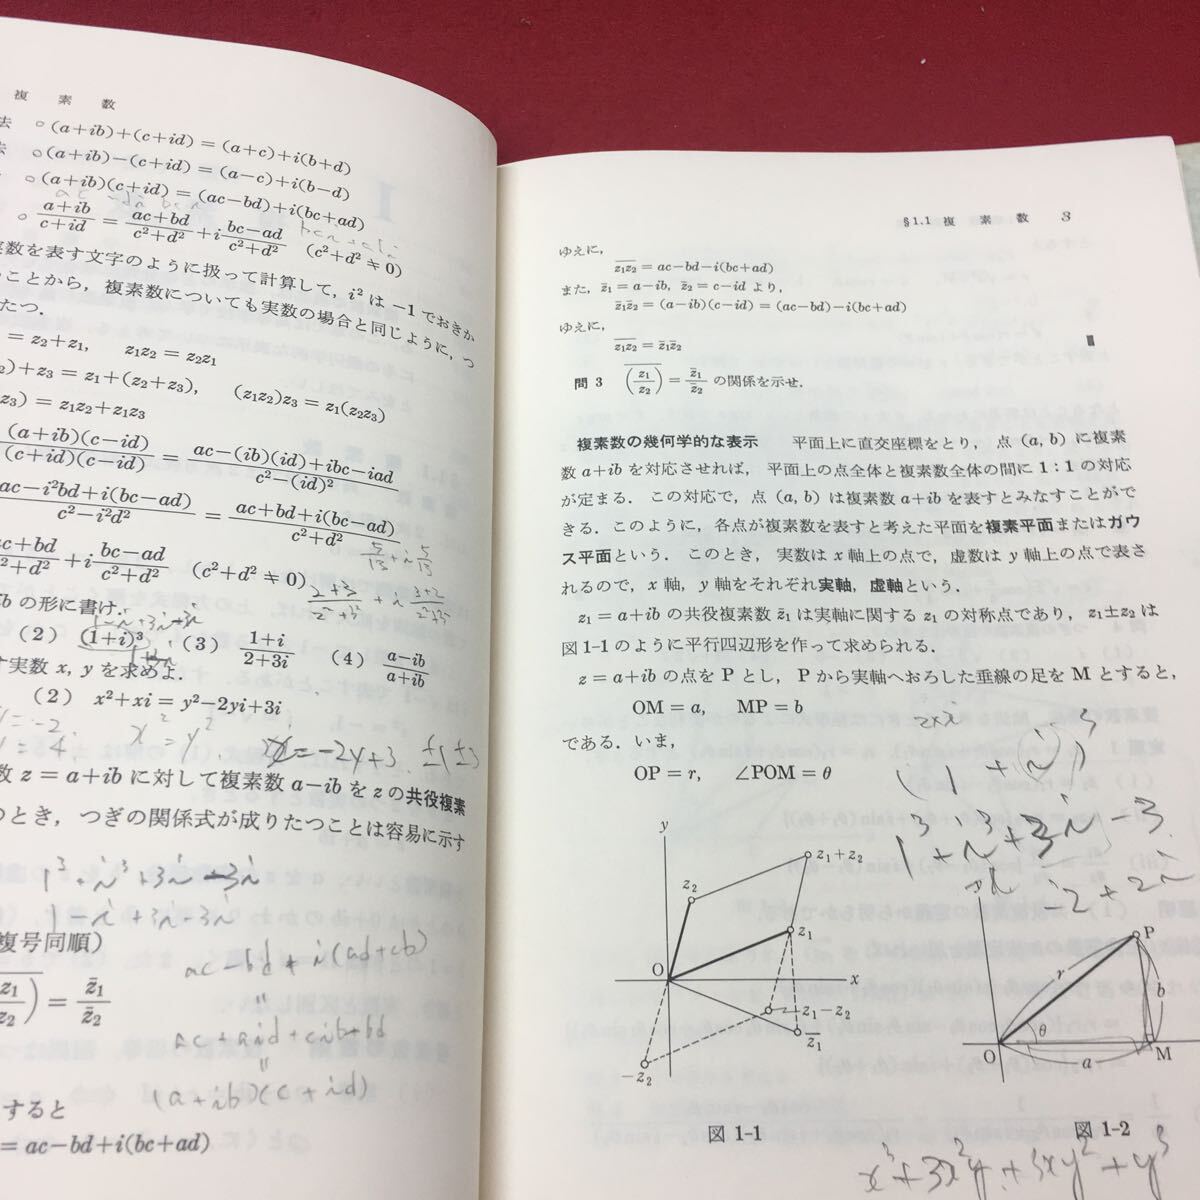 複 素 数
去 ○(a+ib)+(c+id)=(a+c)+i(b+d)
去 ○(a+ib)−(c+id)=(a−c)+i(b−d)
○(a+ib)(c+id)=(ac−bd)+i(bc+ad)
○ \frac{a+ib}{c+id}=\frac{ac+bd}{c²+d²}+i\frac{bc−ad}{c²+d²} (c²+d²≠0)
数を表す文字のように扱って計算して，i²は−1でおきか
ことから，複素数についても実数の場合と同じように，つ
たつ．
=z₂+z₁, z₁z₂=z₂z₁
₂)+z₃=z₁+(z₂+z₃), (z₁z₂)z₃=z₁(z₂z₃)
z₃)=z₁z₂+z₁z₃
\frac{(a+ib)(c−id)}{(c+id)(c−id)}=\frac{ac−(ib)(id)+ibc−iad}{c²−(id)²}
\frac{ac−i²bd+i(bc−ad)}{c²−i²d²}=\frac{ac+bd+i(bc−ad)}{c²+d²}
\frac{ac+bd}{c²+d²}+i\frac{bc−ad}{c²+d²} (c²+d²≠0)
\frac{5}{13}+i\frac{5}{13}
ibの形に書け．
(2) (1+i)³ (3) \frac{1+i}{2+3i} (4) \frac{a−ib}{a+ib}
す実数 x, y を求めよ．
(2) x²+xi=y²−2yi+3i
x²=y² x=−2y+3. ±1±3
数 z=a+ib に対して複素数 a−ib を z の共役複素
のとき，つぎの関係式が成りたつことは容易に示す
1³+i³+3i−3i
1−i+3i−3i
複号同順)
\overline{(\frac{z₁}{z₂})}=\frac{z̄₁}{z̄₂}
ac−bd+i(ad+cb)
=
ac+aid+cib+bd
=
(a+ib)(c+id)
すると
=ac−bd+i(bc+ad)
§1.1 複 素 数 3
ゆえに，
\overline{z₁z₂}=ac−bd−i(bc+ad)
また，z̄₁=a−ib, z̄₂=c−id より，
z̄₁z̄₂=(a−ib)(c−id)=(ac−bd)−i(bc+ad)
ゆえに，
\overline{z₁z₂}=z̄₁z̄₂
問 3 \overline{(\frac{z₁}{z₂})}=\frac{z̄₁}{z̄₂} の関係を示せ．
複素数の幾何学的な表示 平面上に直交座標をとり，点 (a, b) に複素
数 a+ib を対応させれば，平面上の点全体と複素数全体の間に 1：1 の対応
が定まる．この対応で，点 (a, b) は複素数 a+ib を表すとみなすことがで
きる．このように，各点が複素数を表すと考えた平面を複素平面またはガウ
ス平面という．このとき，実数は x 軸上の点で，虚数は y 軸上の点で表さ
れるので，x 軸，y 軸をそれぞれ実軸，虚軸という．
z₁=a+ib の共役複素数 z̄₁ は実軸に関する z₁ の対称点であり，z₁±z₂ は
図 1-1 のように平行四辺形を作って求められる．
z=a+ib の点を P とし，P から実軸へおろした垂線の足を M とすると，
OM=a, MP=b
である．いま，
OP=r, ∠POM=θ
(1+i)³
1³+i³+3i−3.
−2+2i
y
z₁+z₂
z₂
z₁
O
x
z₁−z₂
z̄₁
−z₂
図 1-1
P
r
b
θ
O
a
M
図 1-2
x³+3x²y+3xy²+y³